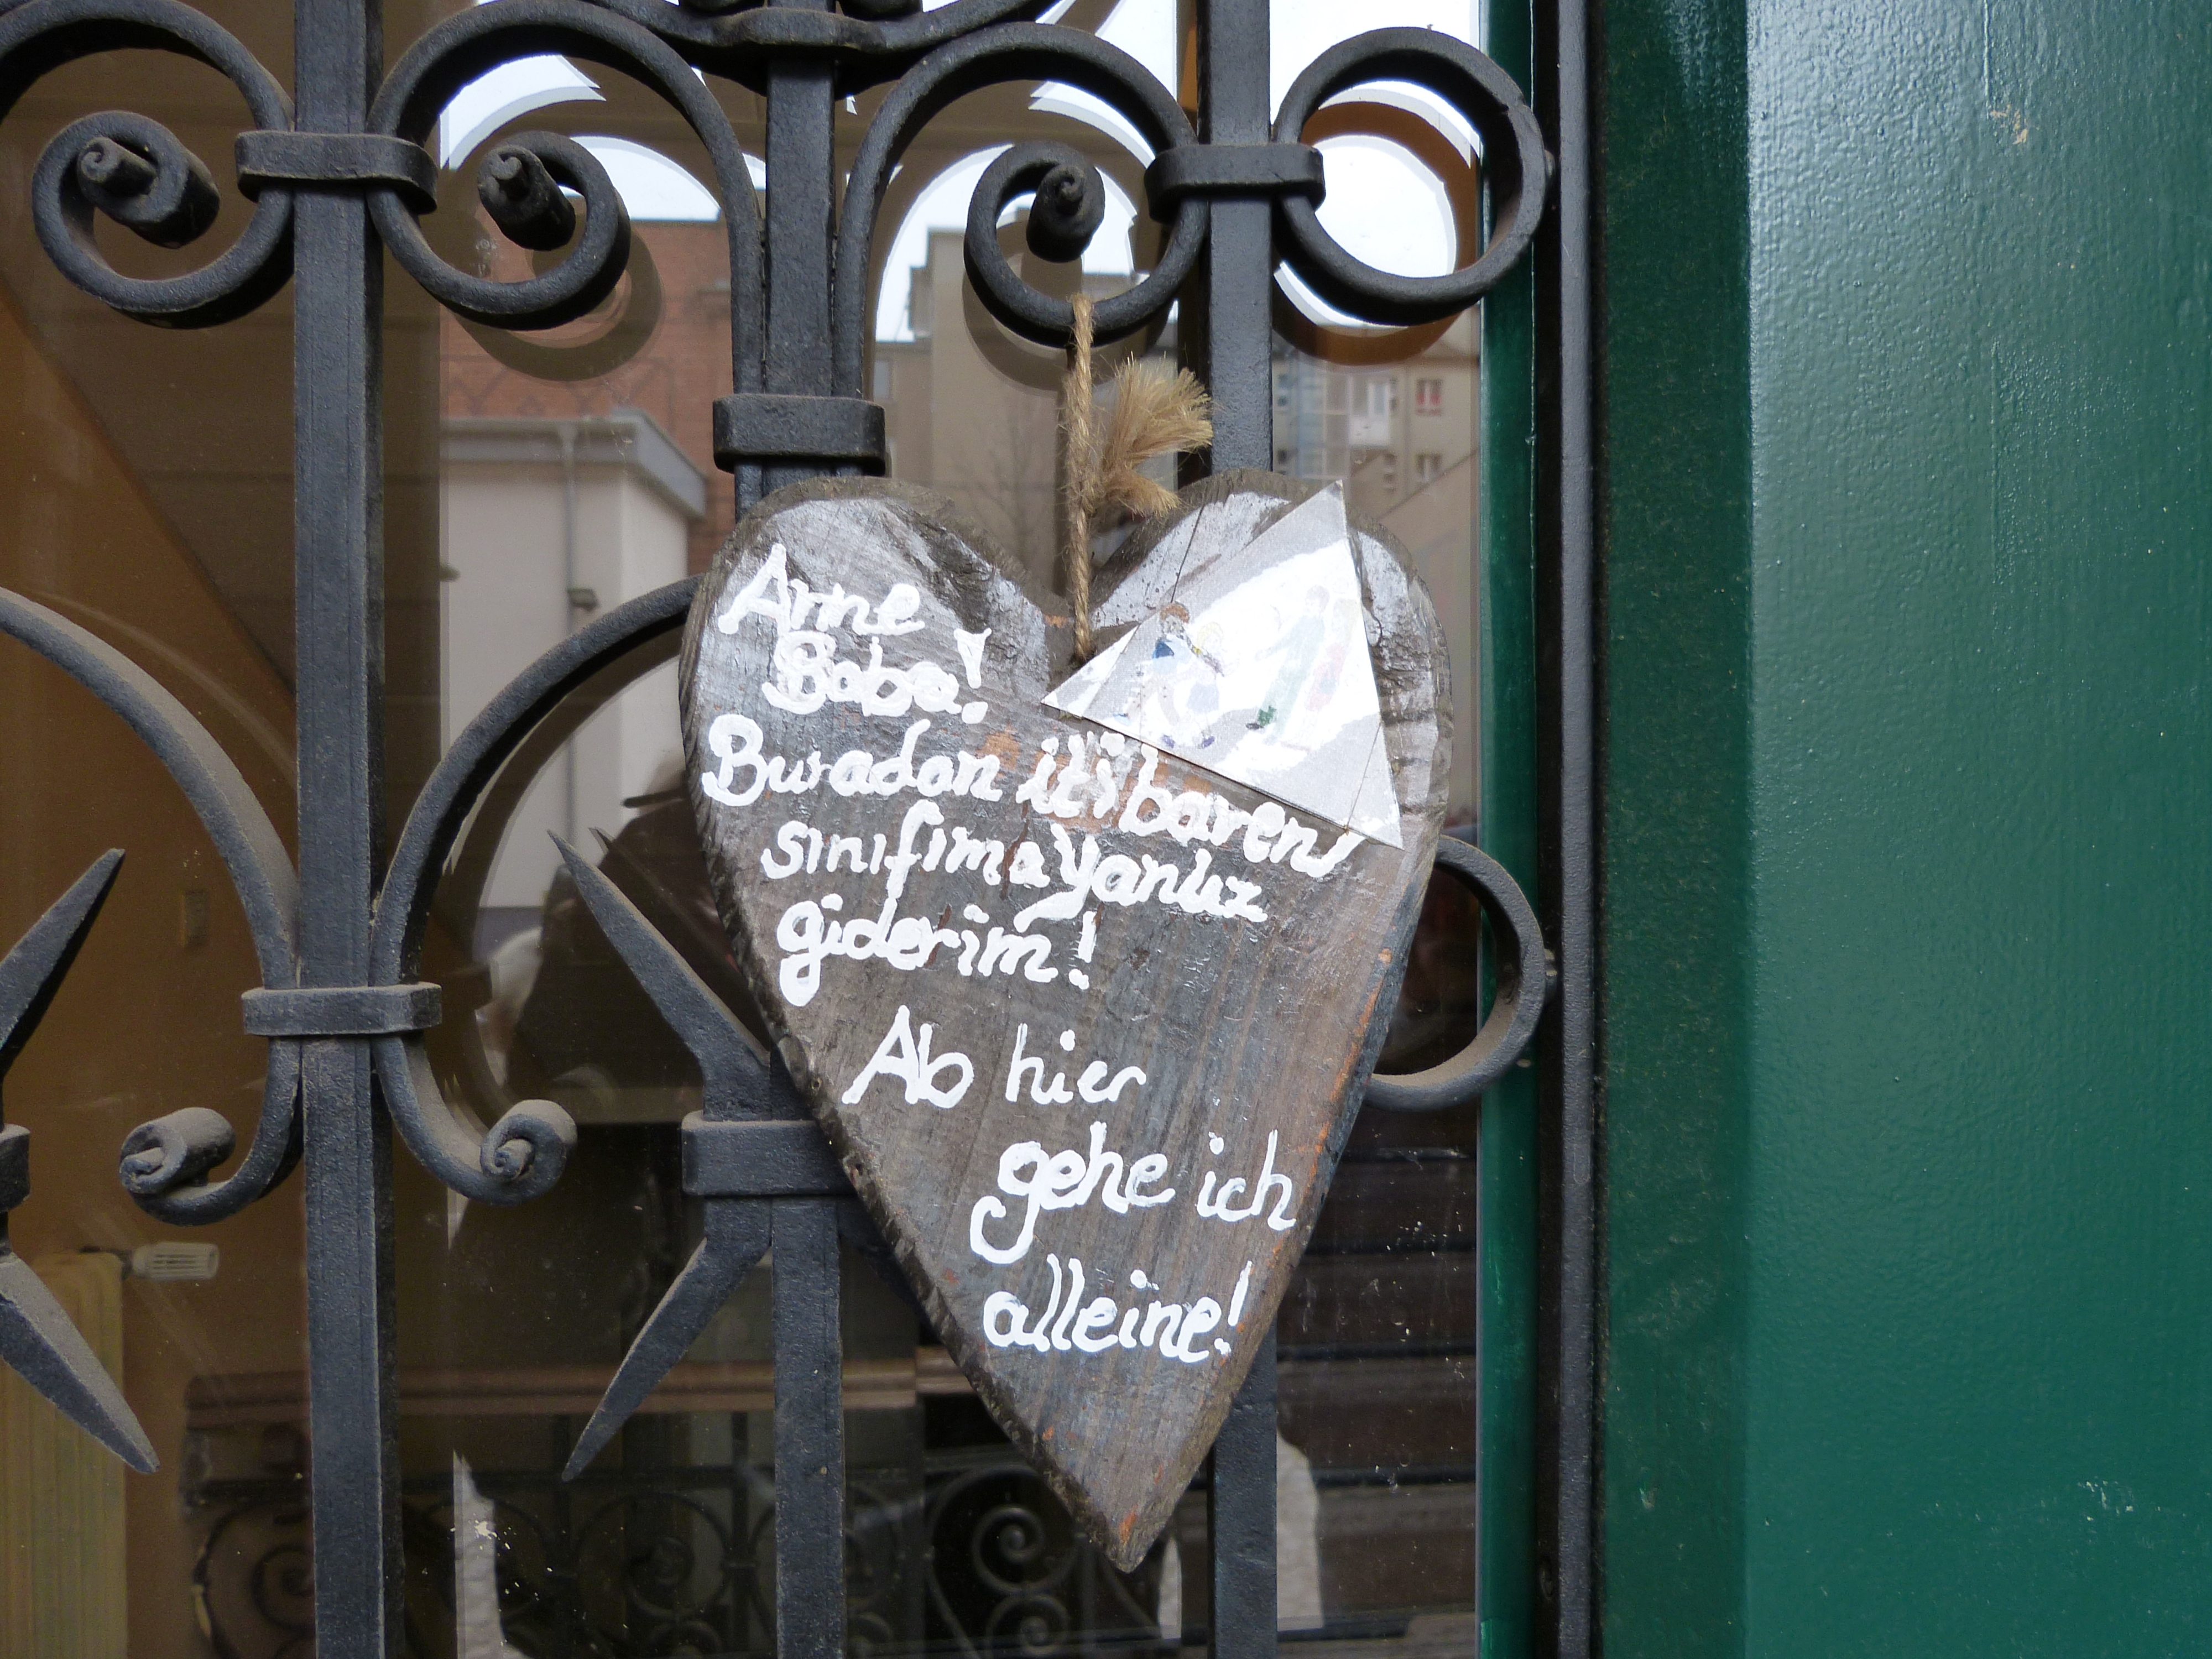 Anne
Baba!
Buradan itibaren
sınıfıma yanlız
giderim!
Ab hier
gehe ich
alleine!